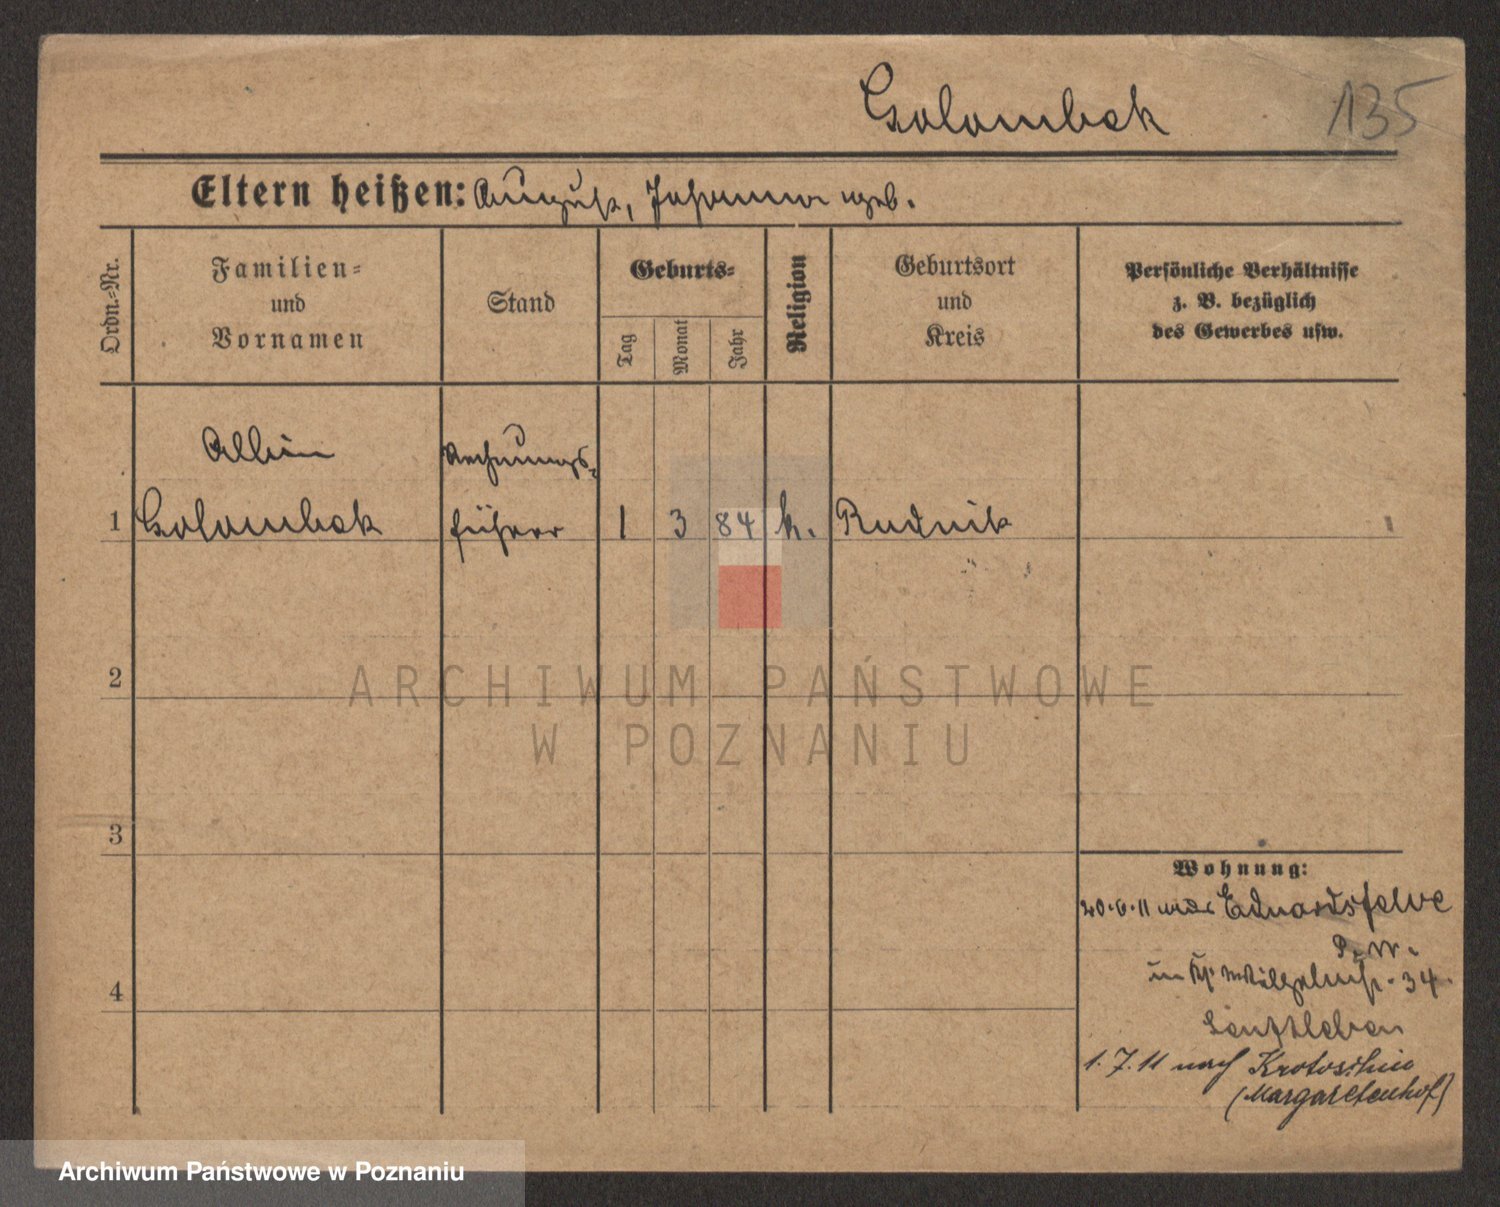 Golombek 135
Eltern heißen: August, Johanna geb.
Ordn.-Nr.
Familien-
und
Vornamen
Stand
Geburts-
Tag
Monat
Jahr
Religion
Geburtsort
und
Kreis
Persönliche Verhältnisse
z. B. bezüglich
des Gewerbes usw.
Albin Rechnungs-
1 Golombek führer 1 3 84 k. Rudnik
2
3
4
Wohnung:
20.6.11 Eduardsfelde
P. W.
in Wilhelmstr. 34
1.7.11 nach Krotoschin
(Margaretenhof)
ARCHIWUM PAŃSTWOWE
W POZNANIU
Archiwum Państwowe w Poznaniu